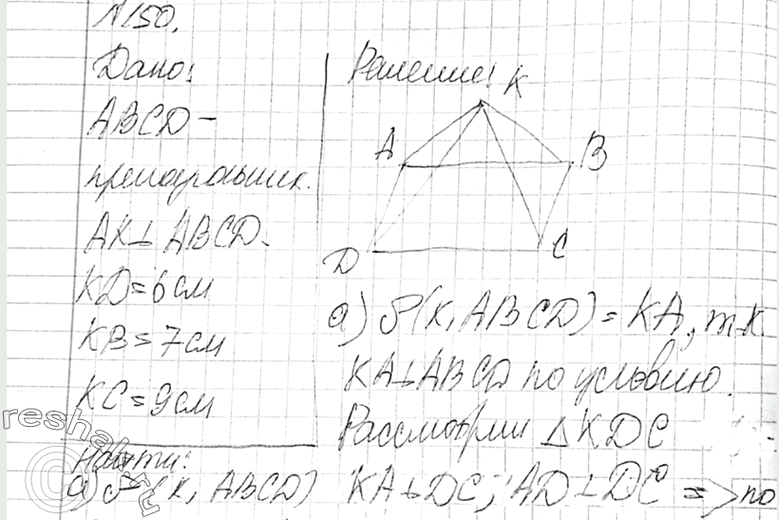 №150.
Дано:
ABCD –
прямоугольник.
AK ⊥ ABCD.
KD = 6 см
KB = 7 см
KC = 9 см
Найти:
а) ρ(K, ABCD)
Решение:
K
A
B
D
C
а) ρ(K, ABCD) = KA, т.к.
KA ⊥ ABCD по условию.
Рассмотрим △KDC
KA ⊥ DC; AD ⊥ DC => по
reshak.ru